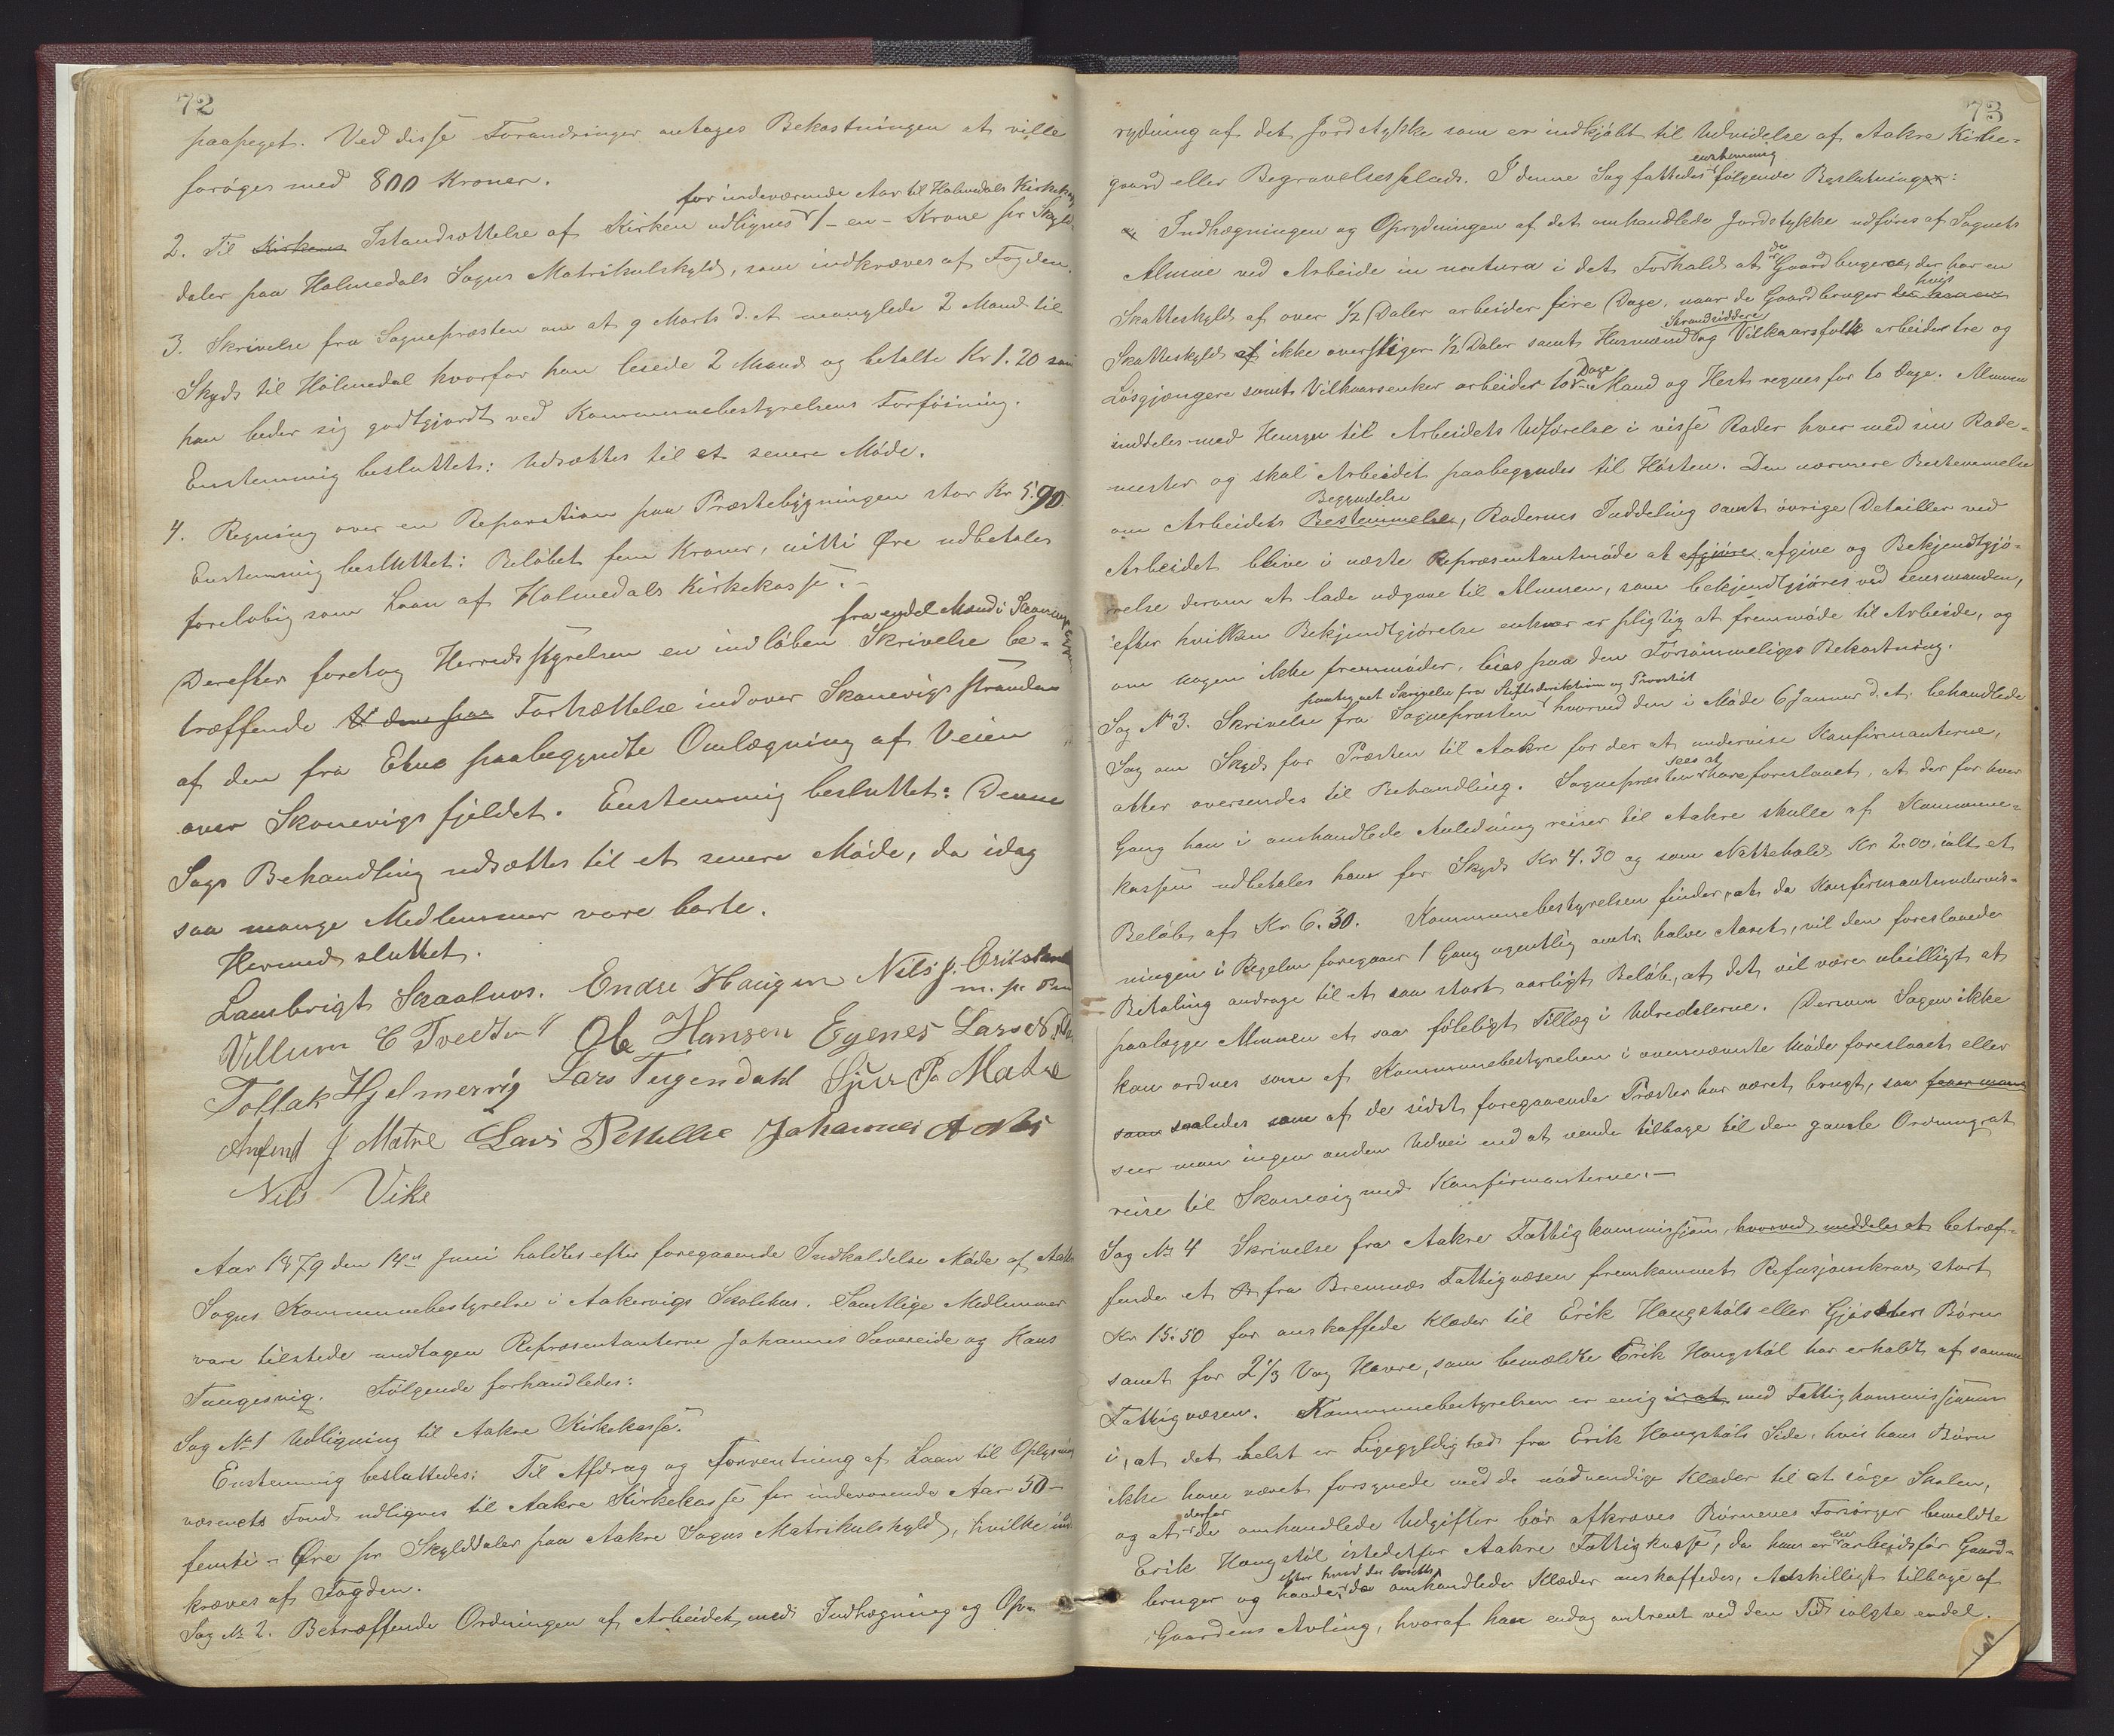 72
paapeget. Ved disse Forandringer antages Bekostningen at ville
forøges med 800 Kroner.
for indeværende Aar til Holmedals Kirkekasse
2. Til Kirkens Istandsættelse af Kirken udlignes 1 - en - Krone pr Skyld-
daler paa Holmedals Sogns Matrikulskyld, som indkræves af Fogden.
3. Skrivelse fra Sognepræsten om at 9 Marts d. A. manglede 2 Mand til
Skyds til Holmedal hvorfor han leiede 2 Mand og betalte Kr 1.20 som
han beder sig godtgjordt ved Kommunebestyrelsens Forføining.
Enstemmig besluttet: Udsættes til et senere Møde.
4. Regning over en Reparation paa Præstebygningen stor Kr 5.90.
Enstemmig besluttet: Beløbet fem Kroner, nitti Øre udbetales
foreløbig som Laan af Holmedals Kirkekasse.
fra endel Mænd i Skaanevig
Derefter foretog Herredsstyrelsen en indløben Skrivelse be-
træffende til den paa Fortsættelse indover Skonevigsstranden
af den fra Etne paabegyndte Omlægning af Veien
over Skonevigsfjeldet. Enstemmig besluttet: Denne
Sags Behandling udsættes til et senere Møde, da idag
saa mange Medlemmer vare borte.
Hermed sluttet.
Lambrigt Skaalnes. Endre Haugen Nils J. Eriks
m. p. Pen
Villum E Tvedten Ole Hansen Egenes Lars N.
Tollak Hjelmervig Lars Teigendahl Sjur P. Matre
Anfind J Matre Lars P Johannes A Næs
Nils Vike
Aar 1879 den 14de Juni holdtes efter foregaaende Indkaldelse Møde af Aakre
Sogns Kommunebestyrelse i Aakervigs Skolehus. Samtlige Medlemmer
vare tilstede undtagen Repræsentanterne Johannes Sævereide og Hans
Tungesvig. Følgende forhandledes:
Sag No 1 Udligning til Aakre Kirkekasse.
Enstemmig besluttedes: Til Afdrag og Forrentning af Laan til Oplysnings
væsenets Fond udlignes til Aakre Kirkekasse for indeværende Aar 50 -
femti - Øre pr Skylddaler paa Aakre Sogns Matrikulskyld, hvilke ind
kræves af Fogden.
Sag No 2. Betræffende Ordningen af Arbeidet med Indhægning og Op-
73
rydning af det Jordstykke som er indkjøbt til Udvidelse af Aakre Kirke-
enstemmig
gaard eller Begravelsesplads. I denne Sag fattedes følgende Beslutninger:
a, Indhægningen og Oprydningen af det omhandlede Jordstykke udføres af Sognets
de
Almue ved Arbeide in natura i det Forhold at Gaardbrugere, der har en
hvis
Skatteskyld af over 1/2 Daler arbeider fire Dage, naar de Gaardbruger der har en
Strandsiddere
Skatteskyld af ikke overstiger 1/2 Daler samt Husmænd og Vilkaarsfolk arbeider tre og
Dage
Løsgjængere samt Vilkaarsenker arbeider to. Mand og Hest regnes for to Dage. Almuen
inddeles med Hensyn til Arbeidets Udførelse i visse Roder hver med sin Rode-
mester og skal Arbeidet paabegyndes til Høsten. Den nærmere Bestemmelse
Begyndelse
om Arbeidets Bestemmelse, Rodernes Inddeling samt øvrige Detailler ved
Arbeidet blive i næste Repræsentantmøde at afgjøre afgive og Bekjendtgjø-
relse derom at lade udgaae til Almuen, som bekjendtgjøres ved Lensmanden,
efter hvilken Bekjendtgjørelse enhver er pligtig at fremmøde til Arbeide, og
om nogen ikke fremmøder, leies paa den Forsømmeliges Bekostning.
paategnet Skrivelse fra Stiftsdirektion og Provstiet
Sag No 3. Skrivelse fra Sognepræsten hvorved den i Møde 6 Januar d. A. behandlede
Sag om Skyds for Præsten til Aakre for der at undervise Konfirmanterne,
sees at
atter oversendes til Behandling. Sognepræsten have foreslaaet, at der for hver
Gang han i omhandlede Anledning reiser til Aakre skulle af Kommune-
kassen udbetales ham for Skyds Kr 4.30 og som Nattehold Kr 2.00, ialt et
Beløb af Kr 6.30. Kommunebestyrelsen finder, at da Konfirmantundervis-
ningen i Regelen foregaaer 1 Gang ugentlig omtr. halve Aaret, vil den foreslaaede
Betaling andrage til et saa stort aarligt Beløb, at det vil være ubilligt at
paalægge Almuen et saa føleligt Tillæg i Udredslerne. Dersom Sagen ikke
kan ordnes som af Kommunebestyrelsen i ovennævnte Møde foreslaaet eller
som saaledes som af de sidst foregaaende Præster har været brugt, saa
seer man ingen anden Udvei end at vende tilbage til den gamle Ordning at
reise til Skonevig med Konfirmanterne. -
Sag No 4 Skrivelse fra Aakre Fattigkommission, hvorved meddeles at betræf-
fende et fra Bremnæs Fattigvæsen fremkommet Refusjonskrav, stort
Kr 15.50 for anskaffede Klæder til Erik Haugstøls eller Gjøsteins Børn
samt for 2 1/3 Vog Havre, som bemældte Erik Haugstøl har erholdt af samme
Fattigvæsen. Kommunebestyrelsen er enig i at med Fattigkommissjonen
i, at det helst er Ligegyldighed fra Erik Haugstøls Side, hvis hans Børn
ikke have været forsynede med de nødvendige Klæder til at søge Skolen,
derfor
og at de omhandlede Udgifter bør afkræves Børnenes Forsørger bemeldte
en
Erik Haugstøl istedetfor Aakre Fattigkasse, da han er arbeidsfør Gaard-
efter hvad der berettes
bruger og havde, da omhandlede Klæder anskaffedes, Adskilligt tilbage af
Gaardens Avling, hvoraf han endog omtrent ved den Tid solgte endel.